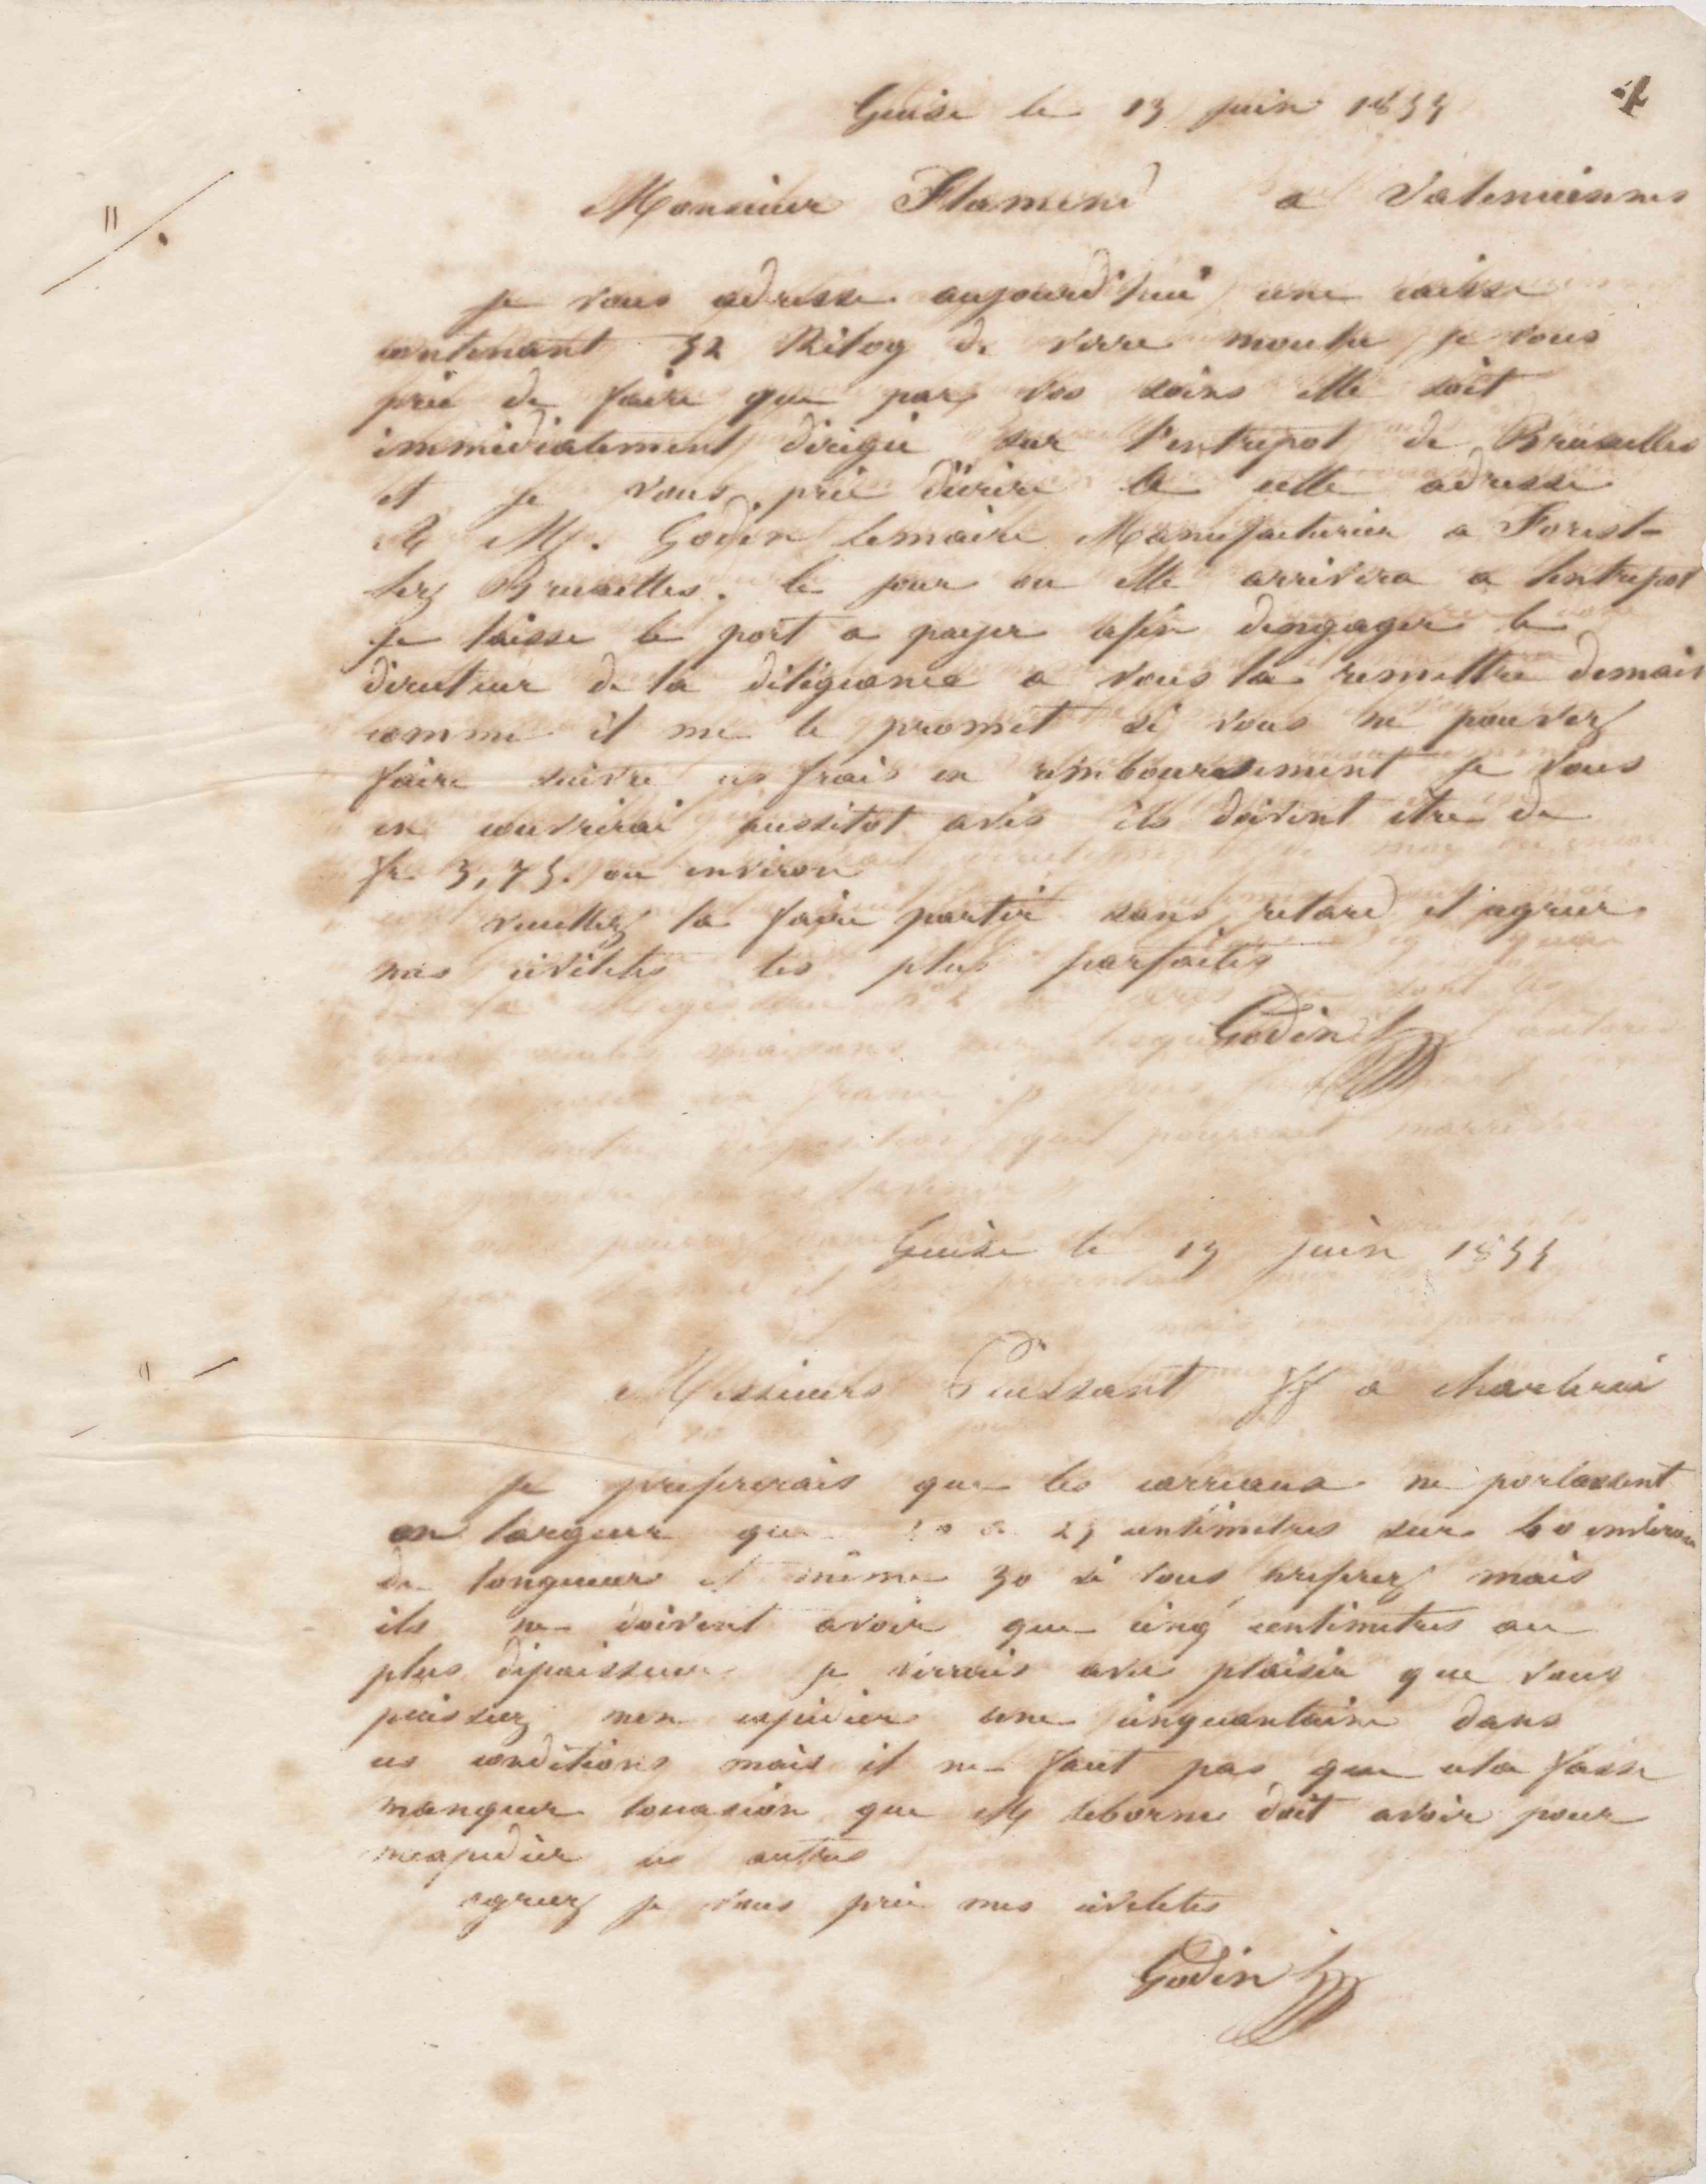 4
Guise le 13 juin 1855
Monsieur Flamend a Valenciennes
je vous adresse aujourd'hui une caisse
contenant 52 Kilog de verre moulu je vous
prie de faire que par vos soins elle soit
immediatement dirigée sur l'entrepot de Bruxelles
et je vous prie décrire a cette adresse
A M. Godin lemaire Manufacturier a Forest-
lez Bruxelles. le jour ou elle arrivera a lentrepot
je laisse le port a payer afin dengager le
directeur de la diligeance a vous la remettre demain
comme il me le promet si vous ne pouvez
faire suivre ces frais en remboursement je vous
en couvrirai aussitot avis ils doivent etre de
fr 3,75. ou environ
veuillez la faire partir sans retard et agreer
mes civilites les plus parfaites
Godin
Guise le 13 juin 1855
Messieurs Puissant ff a charleroi
je prefererais que les carreaux ne portassent
en largeur que 20 a 25 centimetres sur 40 environ
de longueur et même 30 si vous preferez mais
ils ne doivent avoir que cinq centimetres au
plus dépaisseur je verrais avec plaisir que vous
puissiez men expedier une cinquantaine dans
ces conditions mais il ne faut pas que cela fasse
manquer loccasion que M leborne doit avoir pour
mexpedier les autres
agreez je vous prie mes civilites
Godin